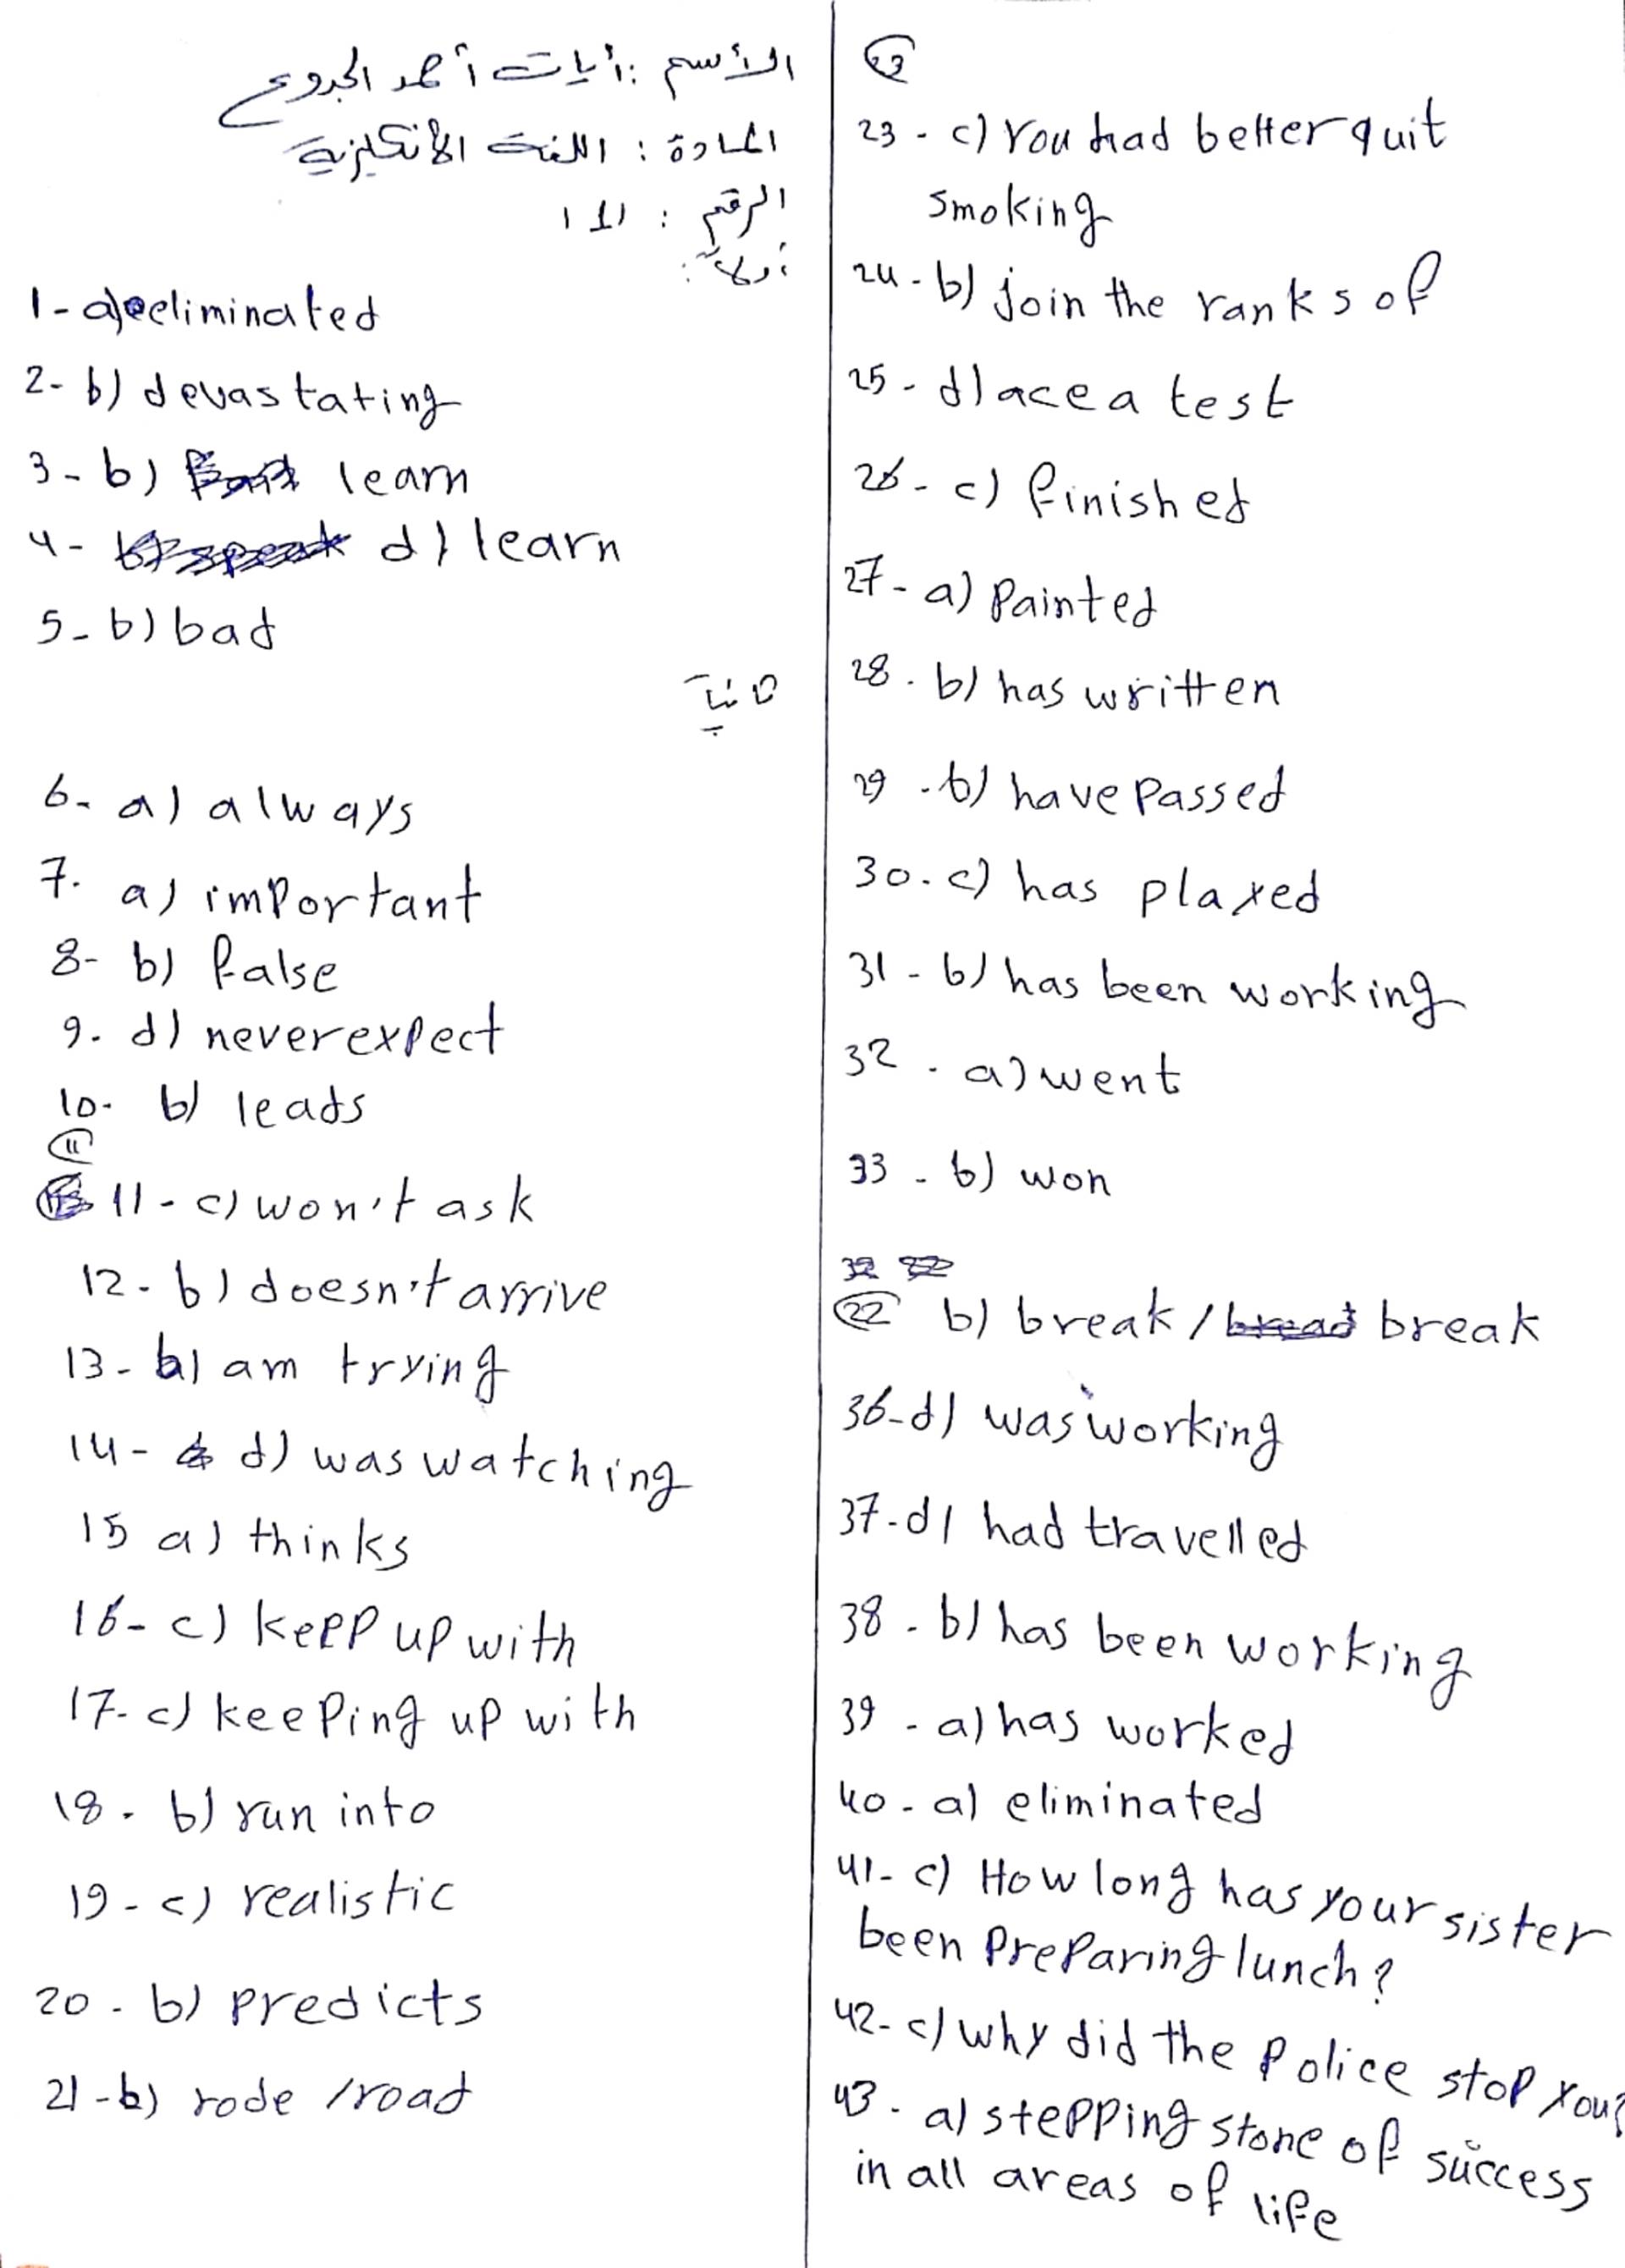 الأسم : أيات أحمد الجدوع
المادة : اللغة الأنكليزية
الرقم :
أولاً :
1- a) eliminated
2- b) devastating
3- b) learn
4- d) learn
5- b) bad
ثانياً
6- a) always
7. a) important
8- b) false
9. d) never expect
10. b) leads
11
11- c) won't ask
12- b) doesn't arrive
13- a) am trying
14- d) was watching
15 a) thinks
16- c) kepp up with
17- c) keeping up with
18. b) run into
19- c) realistic
20. b) predicts
21-b) rode / road
23- c) You had better quit
smoking
24- b) join the ranks of
25- d) ace a test
26- c) finished
27- a) Painted
28. b) has written
29. b) have passed
30. c) has played
31- b) has been working
32. a) went
33- b) won
22 b) break / break
36-d) was working
37-d) had travelled
38- b) has been working
39- a) has worked
40- a) eliminated
41- c) How long has your sister
been Preparing lunch?
42- c) why did the Police stop you?
43- a) stepping stone of success
in all areas of life